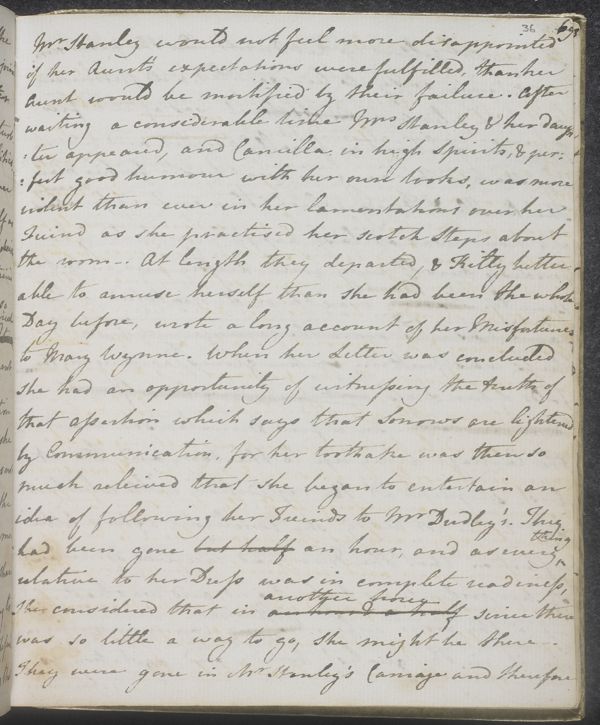 36 69
Mr Stanley would not feel more disappointed
if her Aunt's expectations were fulfilled, than her
Aunt would be mortified by their failure. After
waiting a considerable time Mrs Stanley & her daugh-
:ter appeared, and Camilla in high Spirits, & per:
:fect good humour with her own looks, was more
violent than ever in her lamentations over her
Freind as she practised her scotch Steps about
the room -. At length they departed, & Kitty better
able to amuse herself than she had been the whole
Day before, wrote a long account of her Misfortunes
to Mary Wynne. When her Letter was concluded
she had an opportunity of witnessing the truth of
that assertion which says that Sorrows are lightened
by Communication, for her toothake was then so
much releived that she began to entertain an
idea of following her Freinds to Mr Dudley's. They
had been gone but half an hour, and as every thing
relative to her Dress was in complete readiness,
She considered that in another hour an hour & a half since there
was so little a way to go, she might be there -.
They were gone in Mr Stanley's Carriage and therefore